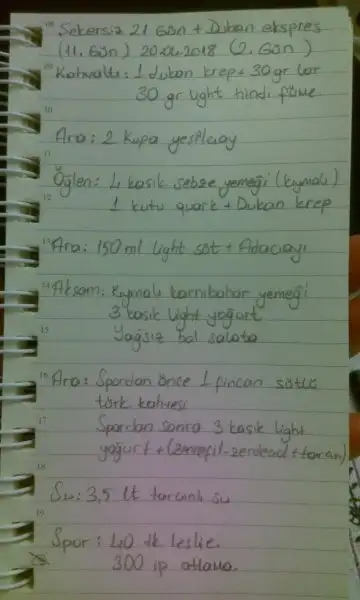 Şekersiz 21 Gün + Dukan ekspres
(11. Gün) 20.04.2018 (2. Gün)
Kahvaltı: 1 dukan krep + 30 gr lor
30 gr light hindi füme
10
Ara: 2 kupa yeşilçay
11
Öğlen: 4 kaşık sebze yemeği (kıymalı)
12
1 kutu quark + Dukan krep
13 Ara: 150 ml light süt + Adaçayı
14 Akşam: Kıymalı karnıbahar yemeği
3 kaşık light yoğurt
15
Yağsız bol salata
16 Ara: Spordan önce 1 fincan sütlü
türk kahvesi
17
Spordan sonra 3 kaşık light
yoğurt + (zencefil-zerdeçal + tarçın)
18
Su: 3,5 lt tarçınlı su
19
Spor: 40 dk leslie.
300 ip atlama.